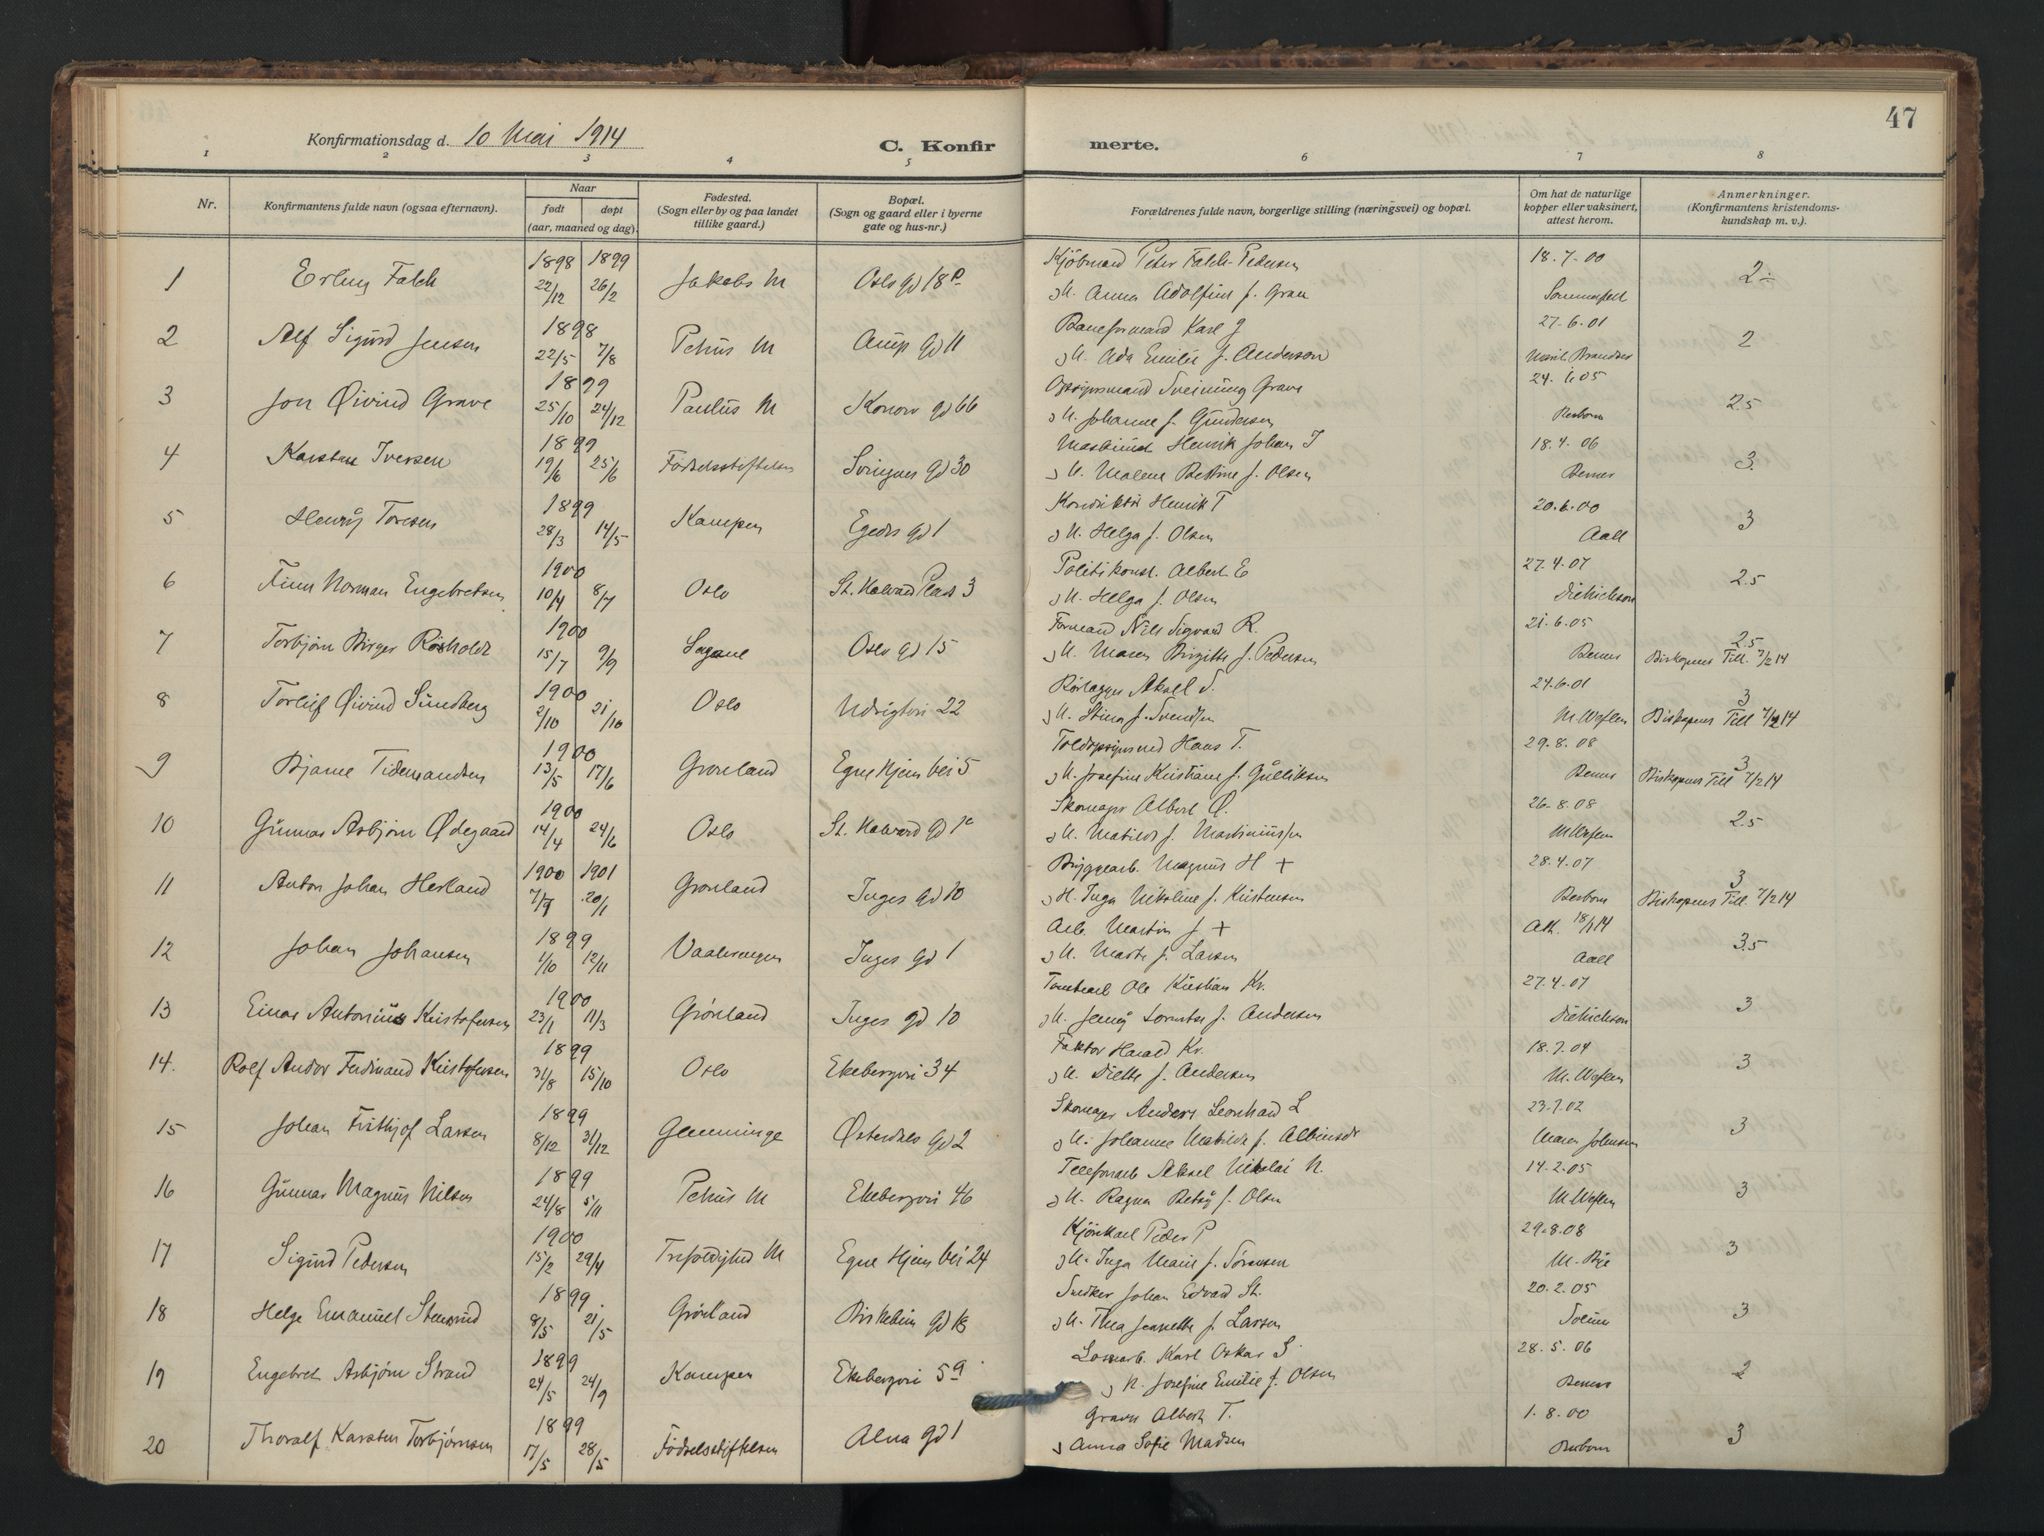 47
Konfirmationsdag d. 10 Mai 1914
C. Konfirmerte.
1 2 3 4 5 6 7 8
Nr.
Konfirmantens fulde navn (ogsaa efternavn).
Naar
født døpt
(aar, maaned og dag).
Fødested.
(Sogn eller by og paa landet
tillike gaard.)
Bopæl.
(Sogn og gaard eller i byerne
gate og hus-nr.)
Forældrenes fulde navn, borgerlige stilling (næringsvei) og bopæl.
Om hat de naturlige
kopper eller vaksinert,
attest herom.
Anmerkninger.
(Konfirmantens kristendoms-
kundskap m. v.)
1 Erling Falch 1898 22/12 1899 26/2 Jakobs M Oslo gd 18
Kjöbmand Peter Falch-Pedersen 18.7.00
Anna Adolfine f. Gran Sommerfelt
2 Alf Sigurd Jensen 1898 22/5 7/8 Petrus M gd 11
Karl J 27.6.01 2
Ada Emilie f. Anderson
3 Jon Øivind Grave 1899 25/10 24/12 Paulus M Konow gd 66
Opsynsmand Sveinung Grave 24.1.05 2.5
H. Johanne f. Gundersen
4 Karsten Iversen 1899 19/6 25/6 Fødselsstiftelsen gd 30
Maskinist Henrik Johan I 18.4.06 3
H. Malene Bettine f. Olsen
5 Henry Toresen 1899 28/3 14/5 Kampen Egedes gd 1
Konduktör Henrik T 20.6.00 3
H. Helga f. Olsen Aall
6 Finn Norman Engebretsen 1900 10/4 8/7 Oslo St. Halvards Plads 3
Politikonst. Albert E 27.4.07 2.5
H. Helga f. Olsen Diethrichson
7 Torbjörn Birger Rösholdt 1900 15/7 9/9 Sagene Oslo gd 15
Formand Nils Sigvard R. 21.6.05 2.5
H. Maren Birgitte f. Pedersen Biskopens Till. 7/2 14
8 Torleif Øivind Sundberg 1900 2/10 21/10 Oslo Utsigtvei 22
Rörlægger Aksel S. 24.6.01 3
H. Stina f. Svendsen M. Weflen Biskopens Till 7/2 14
9 Bjarne Tidemandsen 1900 13/5 17/6 Grønland Egne Hjem vei 5
Hans T. 29.8.08 3
H. Josefine Kristiane f. Gulliksen Biskopens Till 7/2 14
10 Gunnar Asbjørn Ødegaard 1900 14/4 24/6 Oslo St. Halvard gd 1c
Skomager Albert Ø. 26.8.08 2.5
H. Matilde f. Martiniussen M. Weflen
11 Anton Johan Herland 1900 7/9 1901 20/1 Grønland Inges gd 10
Bryggearb. Magnus H + 28.4.07 3
H. Inga Nikoline f. Kristensen Biskopens Till. 7/2 14
12 Johan Johansen 1899 1/10 12/11 Vaalerengen Inges gd 1
Arb. Martin J + Att. 18/1 14 3.5
H. Marte f. Larsen Aall
13 Einar Antonius Kristofersen 1900 23/1 11/3 Grönland Inges gd 10
Tomtearb Ole Kristian Kr. 27.4.07 3
H. Jenny f. Andersen Diethrichson
14. Rolf Andor Ferdinand Kristofersen 1899 31/8 15/10 Oslo Ekebergvei 34
Faktor Harald Kr. 18.7.04 3
H. f. Andersen M. Weflen
15 Johan Frithjof Larsen 1899 8/12 31/12 Glemminge Østerdals gd 2
Skomager Anders Leonhard L 23.7.02 3
H. Johanne Matilde f. Maren Johnsen
16 Gunnar Magnus Nilsen 1899 24/8 5/11 Petrus M Ekebergvei 46
Telefonarb Aksel Nikolai N. 14.2.05 3
H. Ragna Betsy f. Olsen M. Weflen
17 Sigurd Pedersen 1900 15/2 29/4 Trefoldighed M Egne Hjem vei 24
Kjörekarl Peder P 29.8.08 3
H. Inga Marie f. Sörensen M. Bye
18 Helge Emanuel Stensrud 1899 8/5 21/5 Grönland Birkebein gd 18
Snedker Johan Edvard St. 20.2.05 3
H. Thea Jeanette f. Larsen
19 Engebret Asbjørn Strand 1899 24/5 24/9 Kampen Ekebergvei 5a
Karl Oskar S 28.5.06 2
H. Josefine Emilie f. Olsen
20 Thoralf Karsten Torbjørnsen 1899 17/5 28/5 Födselsstiftelsen Alna gd 1
Graver Albert T. 1.8.00 3
Anna Sofie Madsen